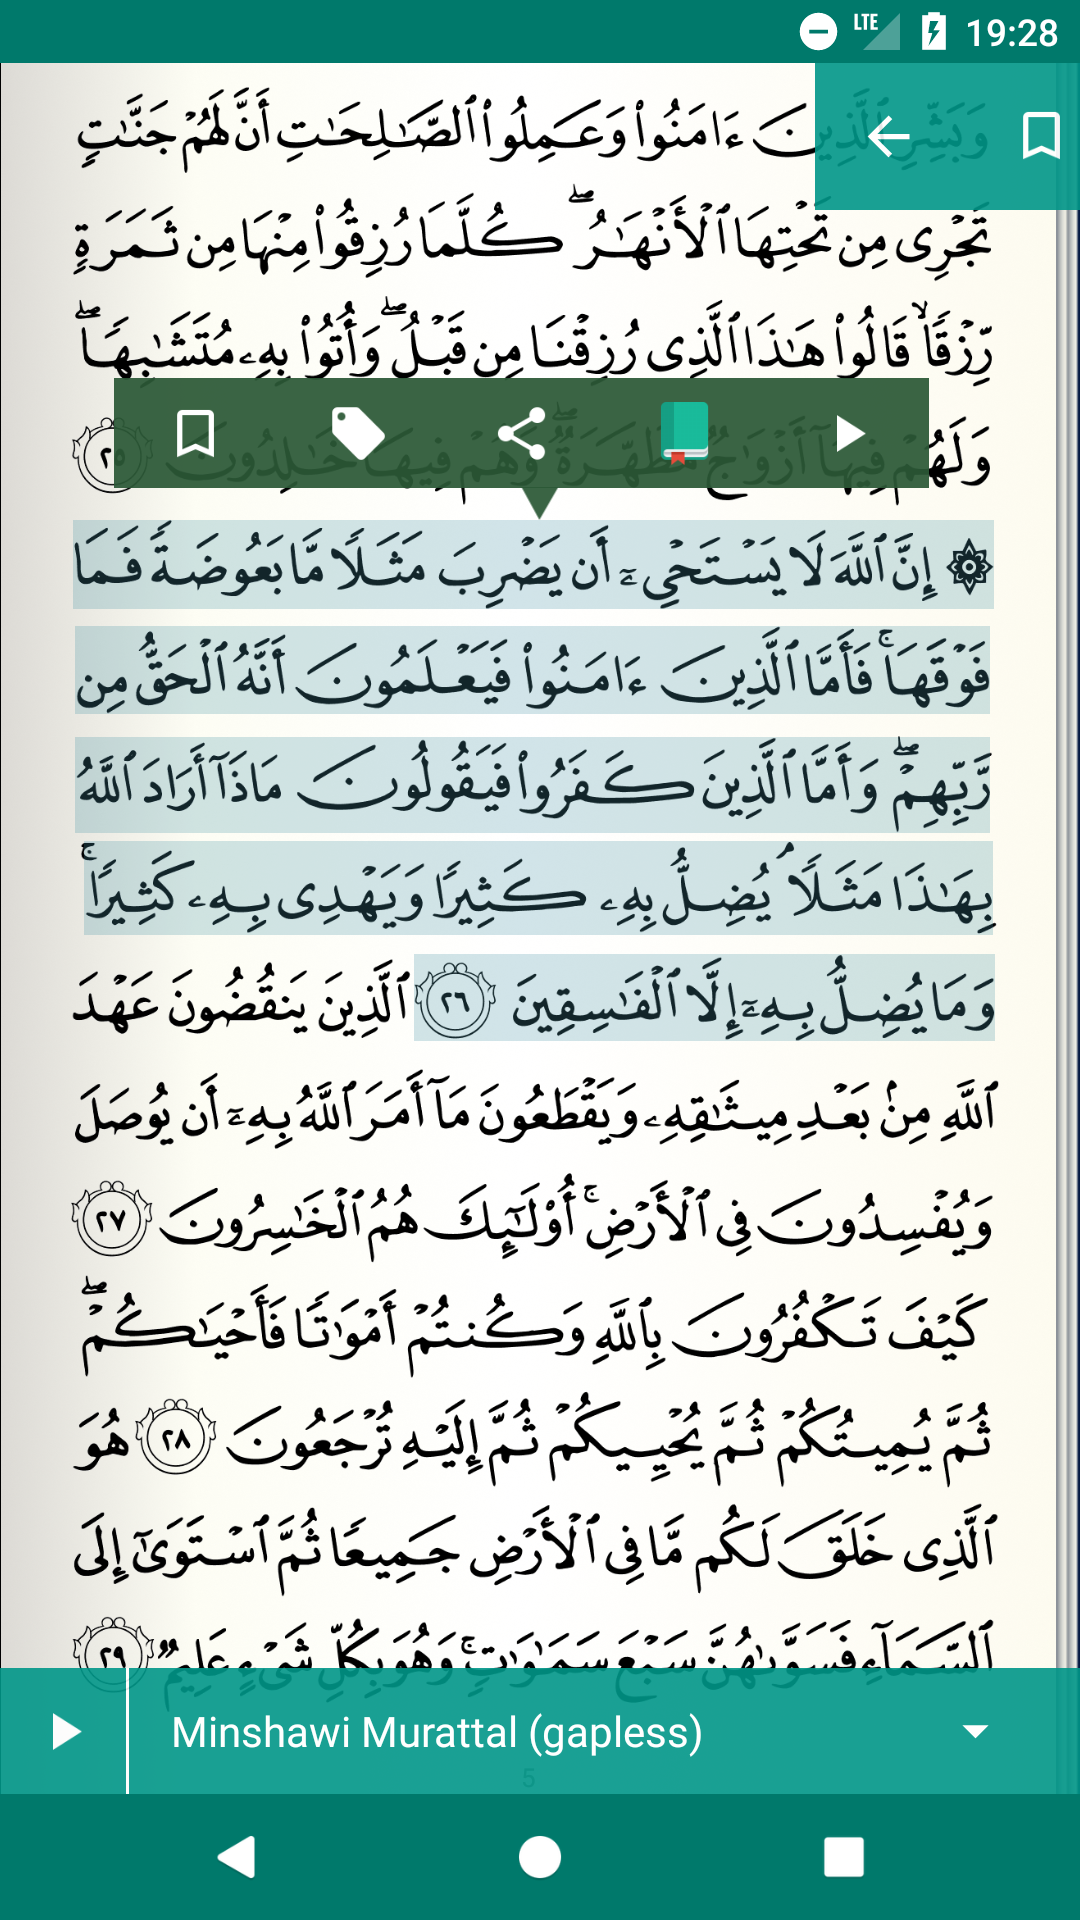 LTE 19:28
وَبَشِّرِ ٱلَّذِينَ ءَامَنُوا۟ وَعَمِلُوا۟ ٱلصَّٰلِحَٰتِ أَنَّ لَهُمْ جَنَّٰتٍ
تَجْرِى مِن تَحْتِهَا ٱلْأَنْهَٰرُ ۖ كُلَّمَا رُزِقُوا۟ مِنْهَا مِن ثَمَرَةٍ
رِّزْقًا ۙ قَالُوا۟ هَٰذَا ٱلَّذِى رُزِقْنَا مِن قَبْلُ ۖ وَأُتُوا۟ بِهِۦ مُتَشَٰبِهًا ۖ
وَلَهُمْ فِيهَآ أَزْوَٰجٌ مُّطَهَّرَةٌ ۖ وَهُمْ فِيهَا خَٰلِدُونَ ٢٥
۞ إِنَّ ٱللَّهَ لَا يَسْتَحْىِۦٓ أَن يَضْرِبَ مَثَلًا مَّا بَعُوضَةً فَمَا
فَوْقَهَا ۚ فَأَمَّا ٱلَّذِينَ ءَامَنُوا۟ فَيَعْلَمُونَ أَنَّهُ ٱلْحَقُّ مِن
رَّبِّهِمْ ۖ وَأَمَّا ٱلَّذِينَ كَفَرُوا۟ فَيَقُولُونَ مَاذَآ أَرَادَ ٱللَّهُ
بِهَٰذَا مَثَلًا ۘ يُضِلُّ بِهِۦ كَثِيرًا وَيَهْدِى بِهِۦ كَثِيرًا ۚ
وَمَا يُضِلُّ بِهِۦٓ إِلَّا ٱلْفَٰسِقِينَ ٢٦ ٱلَّذِينَ يَنقُضُونَ عَهْدَ
ٱللَّهِ مِنۢ بَعْدِ مِيثَٰقِهِۦ وَيَقْطَعُونَ مَآ أَمَرَ ٱللَّهُ بِهِۦٓ أَن يُوصَلَ
وَيُفْسِدُونَ فِى ٱلْأَرْضِ ۚ أُو۟لَٰٓئِكَ هُمُ ٱلْخَٰسِرُونَ ٢٧
كَيْفَ تَكْفُرُونَ بِٱللَّهِ وَكُنتُمْ أَمْوَٰتًا فَأَحْيَٰكُمْ ۖ
ثُمَّ يُمِيتُكُمْ ثُمَّ يُحْيِيكُمْ ثُمَّ إِلَيْهِ تُرْجَعُونَ ٢٨ هُوَ
ٱلَّذِى خَلَقَ لَكُم مَّا فِى ٱلْأَرْضِ جَمِيعًا ثُمَّ ٱسْتَوَىٰٓ إِلَى
ٱلسَّمَآءِ فَسَوَّىٰهُنَّ سَبْعَ سَمَٰوَٰتٍ ۚ وَهُوَ بِكُلِّ شَىْءٍ عَلِيمٌ ٢٩
Minshawi Murattal (gapless)
5